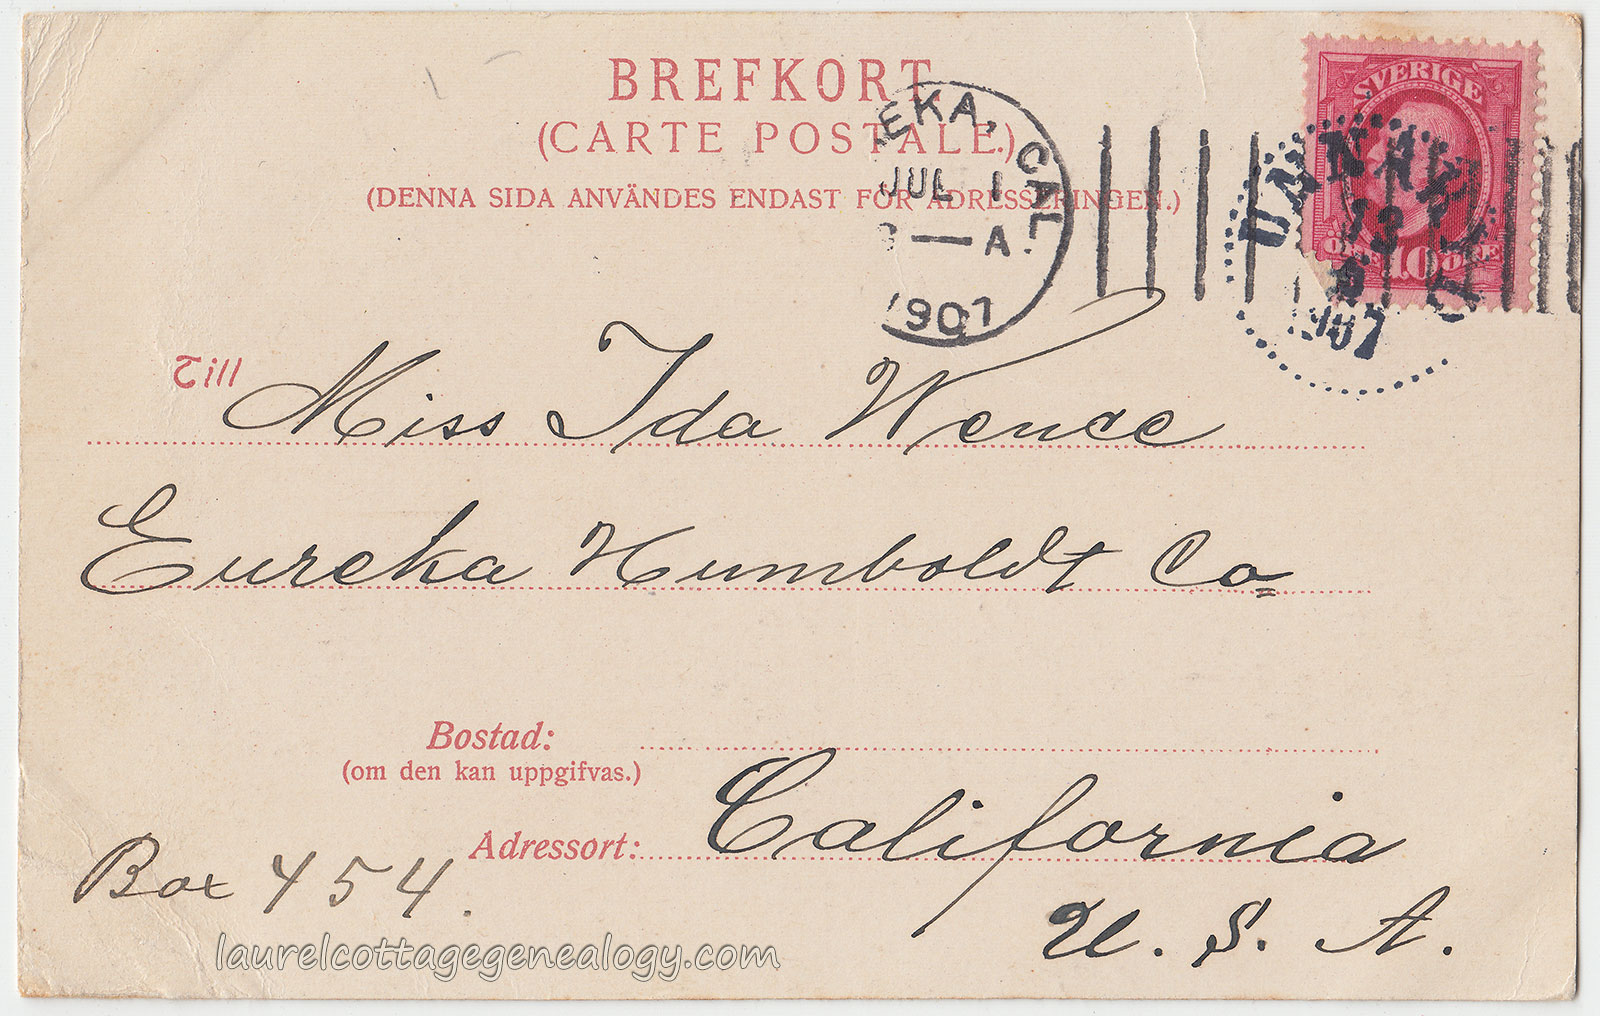 BREFKORT.
(CARTE POSTALE.)
(DENNA SIDA ANVÄNDES ENDAST FÖR ADRESSERINGEN.)
EKA, CAL.
JUL 1
— A
1907
SVERIGE
10 ÖRE
13
1907
Till Miss Ida Wence
Eureka Humboldt Co
Bostad:
(om den kan uppgifvas.)
Adressort: California
Box 454.
U. S. A.
laurelcottagegenealogy.com